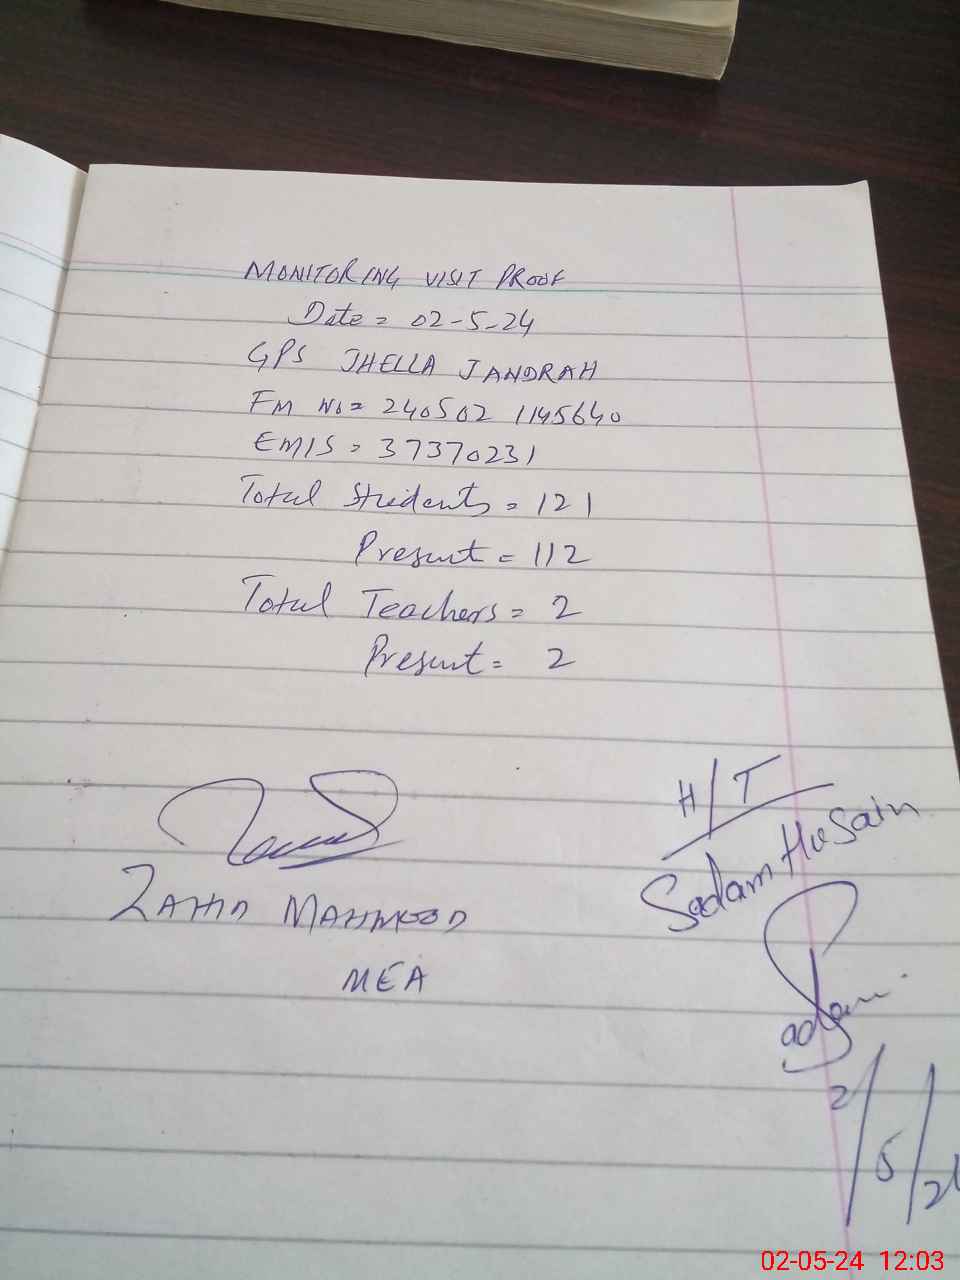 MONITORING VISIT PROOF
Date = 02-5-24
GPS JHELLA JANDRAH
FM No = 240502 1145640
EMIS = 37370231
Total Students = 121
Present = 112
Total Teachers = 2
Present = 2
H/T
Sadam Husain
ZAHID MAHMOOD
MEA
2/5/24
02-05-24 12:03